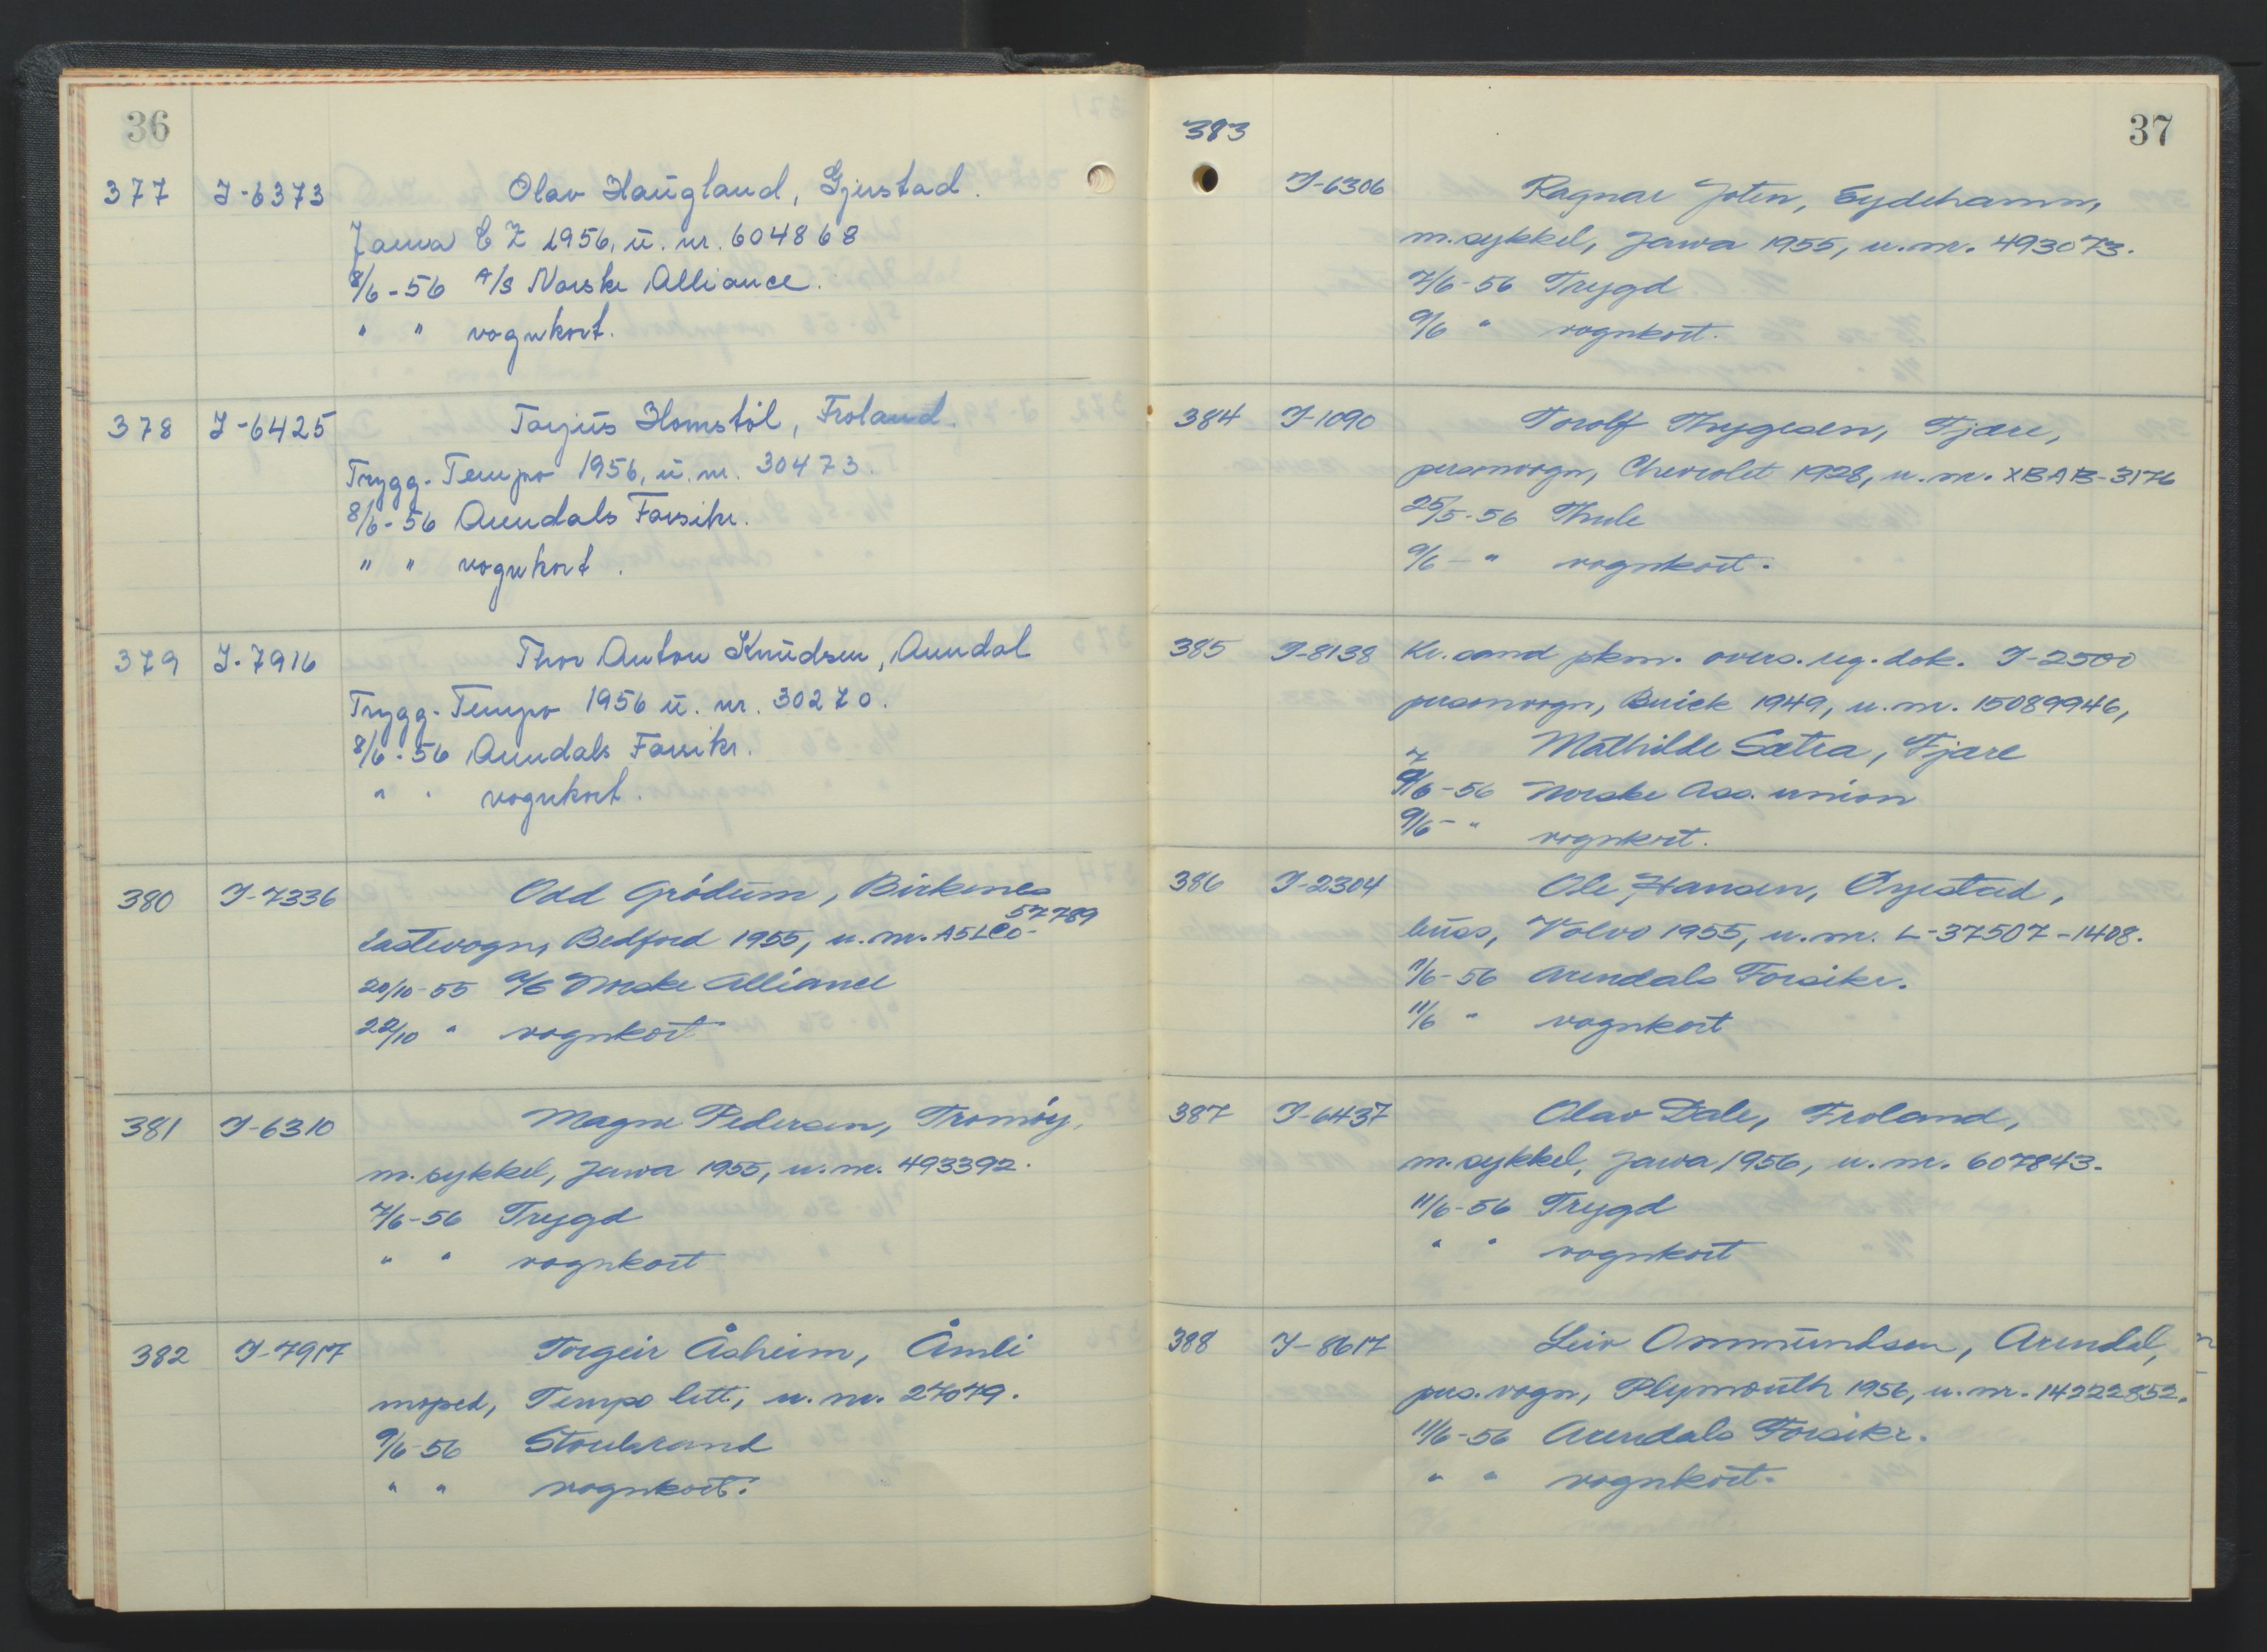 36
377 I-6373 Olav Haugland, Gjerstad.
Jawa CZ 1956, u. nr. 604868
8/6-56 A/S Norske Alliance.
" " vognkort.
378 I-6425 Torjus Homstøl, Froland.
Trygg-Tempo 1956, u. nr. 30473.
8/6-56 Arendals Forsikr.
" " vognkort.
379 I-7916 Thor Anton Knudsen, Arendal
Trygg-Tempo 1956 u. nr. 30270.
8/6-56 Arendals Forsikr.
" " vognkort.
380 I-7336 Odd Grødum, Birkenes
lastevogn, Bedford 1955, u. nr. A5LCO-57789
20/10-55 A/S Norske Alliance
22/10 " vognkort
381 I-6310 Magne Pedersen, Tromøy,
m.sykkel, Jawa 1955, u. nr. 493392.
7/6-56 Trygd
" " vognkort
382 I-7917 Torgeir Åsheim, Åmli
moped, Tempo lett, u. nr. 27079.
9/6-56 Storebrand
" " vognkort.
37
383
I-6306 Ragnar Joten, Eydehamn,
m.sykkel, Jawa 1955, u. nr. 493073.
7/6-56 Trygd
9/6 " vognkort.
384 I-1090 Torolf Thygesen, Fjære,
personvogn, Chevrolet 1928, u. nr. XBAB-3176
25/5-56 Thule
9/6-" vognkort.
385 I-8138 Kr.sand pkm. overs. reg. dok. I-2500
personvogn, Buick 1949, u. nr. 15089946,
Mathilde Sætra, Fjære
7/6-56 Norske Ass. union
9/6-" vognkort.
386 I-2304 Ole Hansen, Øyestad,
buss, Volvo 1955, u. nr. L-37507-1408.
1/6-56 Arendals Forsikr.
11/6 " vognkort
387 I-6437 Olav Dale, Froland,
m.sykkel, Jawa 1956, u. nr. 607843.
11/6-56 Trygd
" " vognkort
388 I-8617 Leiv Ommundsen, Arendal,
pers.vogn, Plymouth 1956, u. nr. 14222852.
11/6-56 Arendals Forsikr.
" " vognkort.